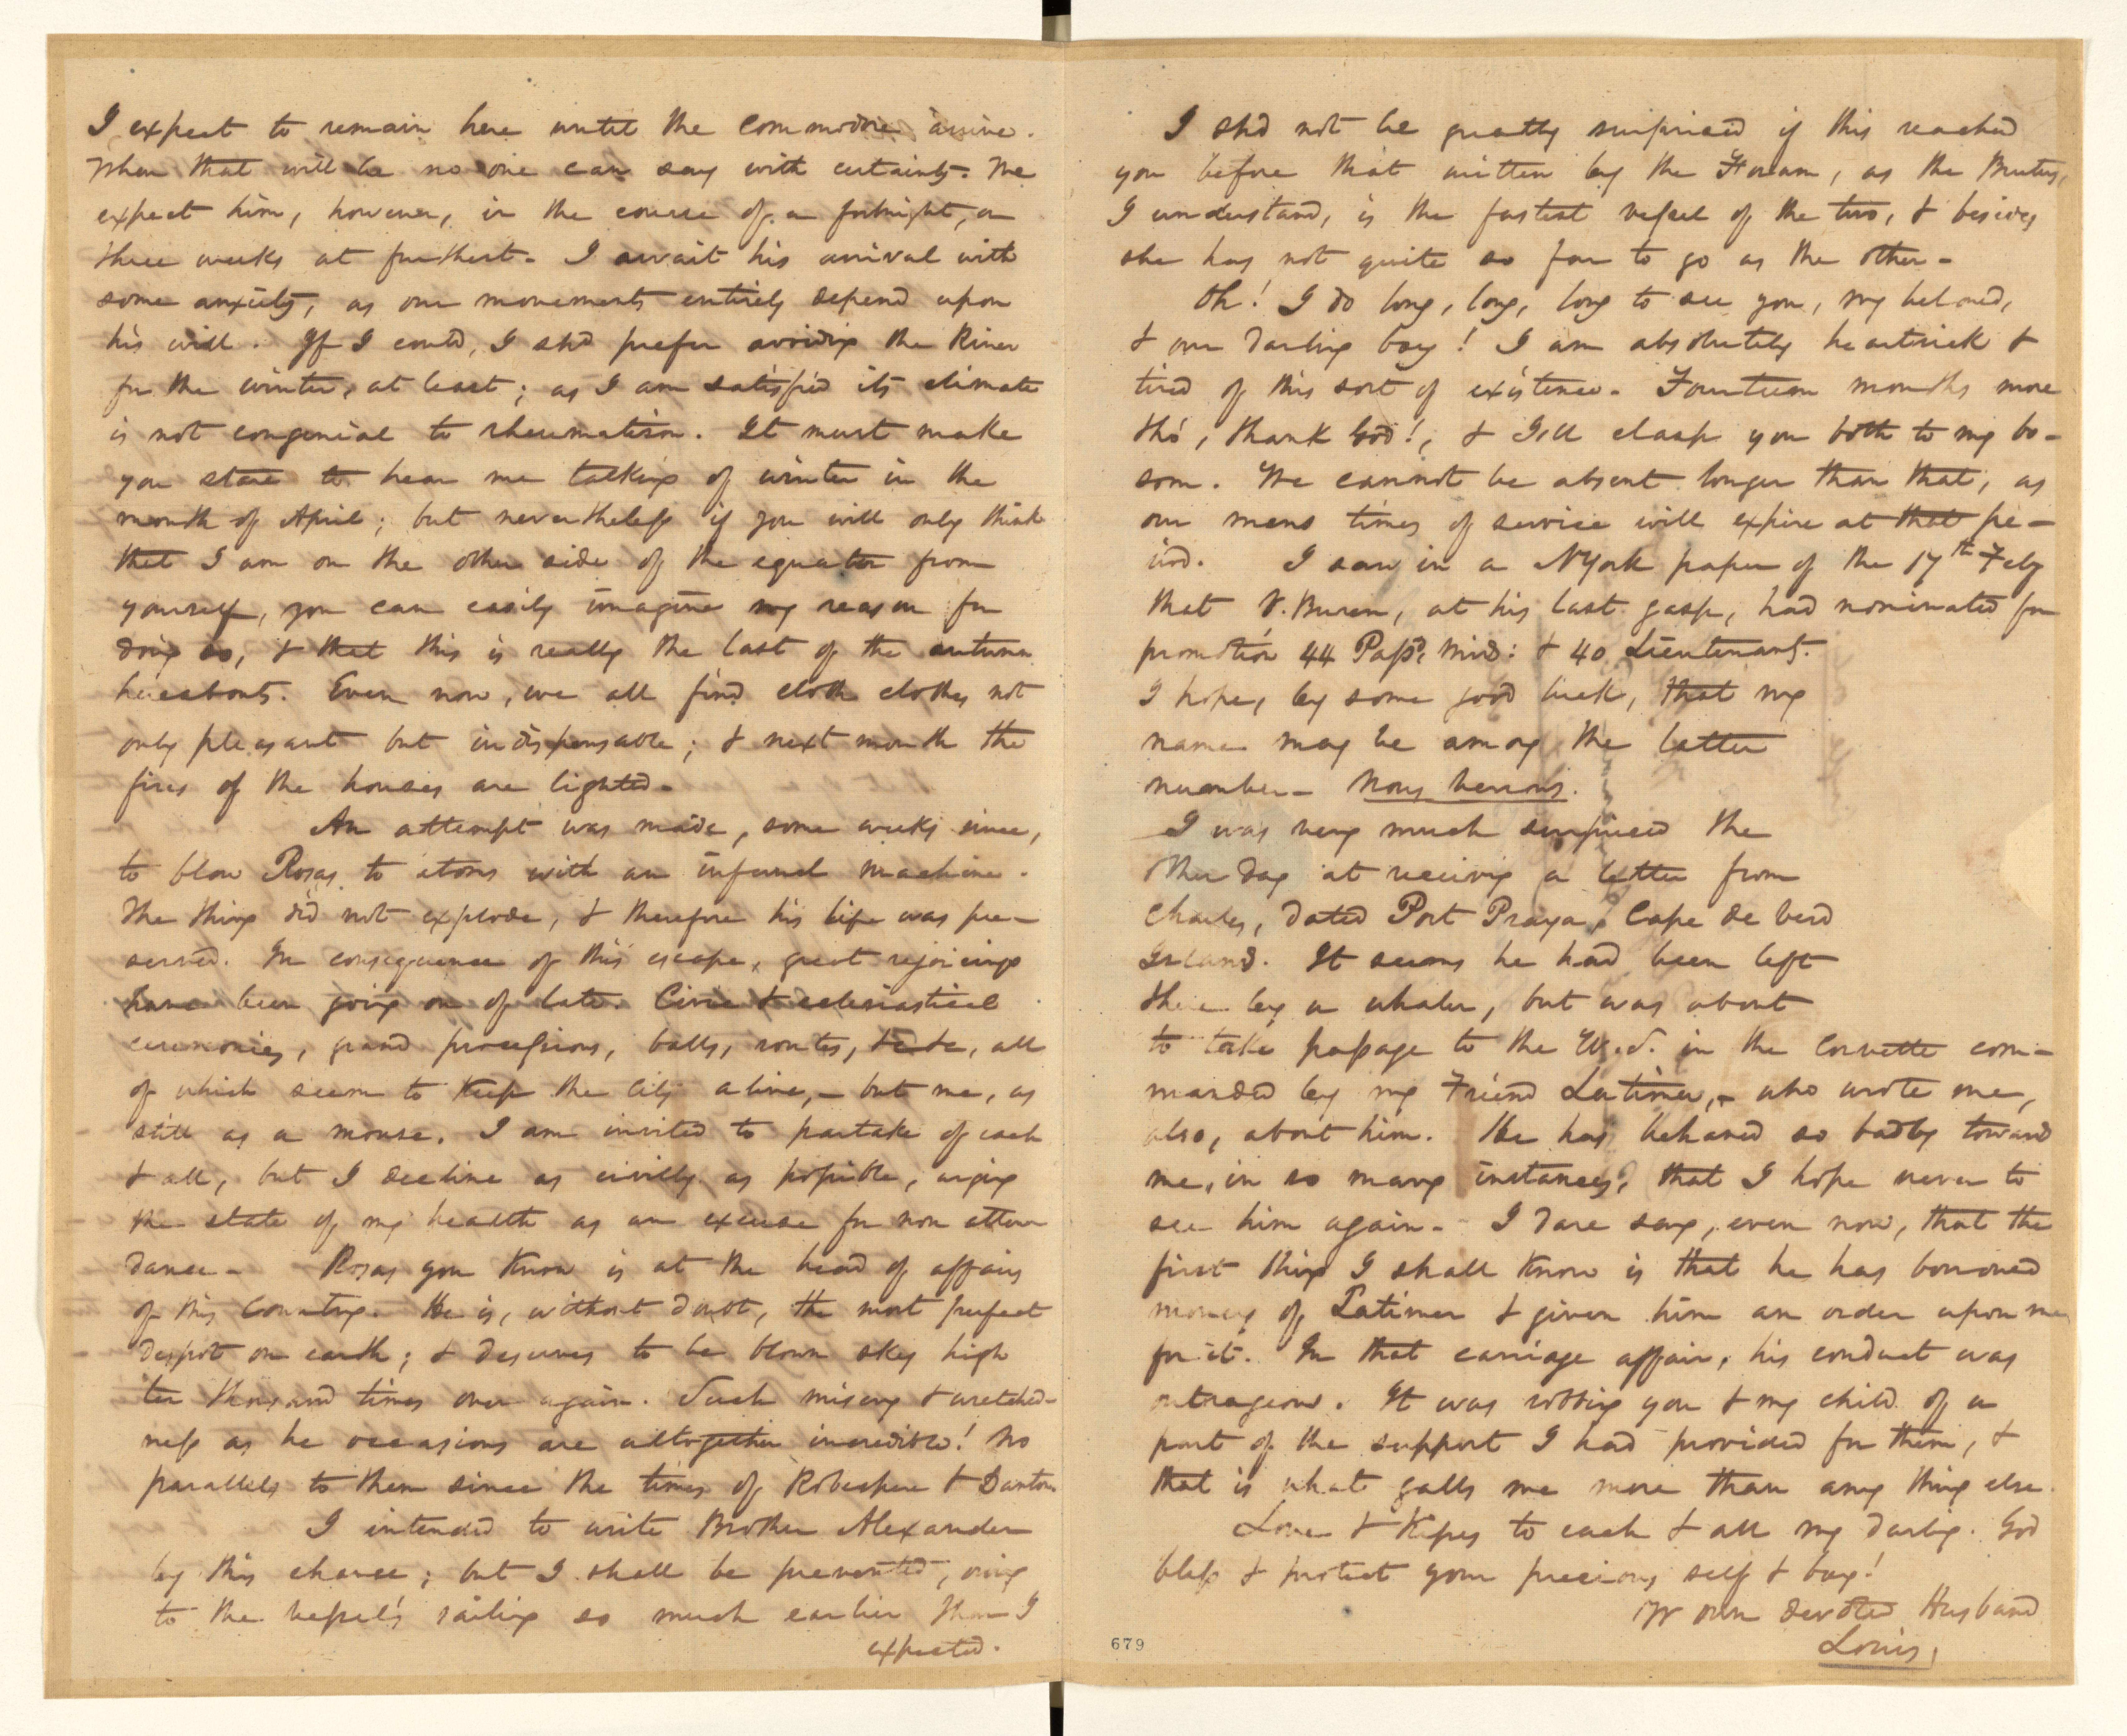 I expect to remain here until the Commodore arrive.
When that will be no one can say with certainty. We
expect him, however, in the course of a fortnight, or
three weeks at furthest. I await his arrival with
some anxiety, as our movements entirely depend upon
his will. If I could, I shd prefer avoiding the River
for the winter, at least; as I am satisfied its climate
is not congenial to rheumatism. It must make
you stare to hear me talking of winter in the
month of April; but nevertheless if you will only think
that I am on the other side of the equator from
yourself, you can easily imagine my reason for
doing so, & that this is really the last of the autumn
hereabouts. Even now, we all find cloth clothes not
only pleasant but indispensable; & next month the
fires of the houses are lighted-
An attempt was made, some weeks since,
to blow Rosas to atoms with an infernal machine.
The thing did not explode, & therefore his life was pre-
served. In consequence of this escape, great rejoicings
have been going on of late. Civic & eclesiastical
ceremonies, grand processions, balls, routes, &c &c, all
of which seem to keep the city alive,- but me, as
still as a mouse. I am invited to partake of each
& all, but I decline as civilly as possible, urging
the state of my health as an excuse for non atten
dance- Rosas you know is at the head of affairs
of this Country. He is, without doubt, the most perfect
despot on earth; & deserves to be blown sky high
ten thousand times over again. Such misery & wretched-
ness as he occasions are altogether incredible! No
parallels to them since the times of Robespere & Danton
I intended to write Brother Alexander
by this chance; but I shall be prevented, owing
to the vessel's sailing so much earlier than I
expected.
I shd not be greatly surprised if this reached
you before that written by the as the Brutus,
I understand, is the fastest vessel of the two, & besides
she has not quite so far to go as the other-
Oh! I do long, long, long to see you, my beloved,
& our darling boy! I am absolutely heartsick &
tired of this sort of existence. Fourteen months more
tho', thank God!, & I'll clasp you both to my bo-
som. We cannot be absent longer than that, as
our mens times of service will expire at that pe-
riod. I saw in a NYork paper of the 17th Feby
that V. Buren, at his last gasp, had nominated for
promotion 44 Passd Mid: & 40 Lieutenants.
I hope, by some good luck, that my
name may be among the latter
number- Nous verrons.
I was very much surprised the
other day at receiving a letter from
Charles, dated Port Praya, Cape de Verd
Island. It seems he had been left
there by a whaler, but was about
to take passage to the U.S. in the Corvette com-
manded by my Friend Latimer,- who wrote me,
also, about him. He has behaved so badly toward
me, in so many instances, that I hope never to
see him again- I dare say, even now, that the
first thing I shall know is that he has borrowed
money of Latimer & given him an order upon me
for it. In that carriage affair, his conduct was
outrageous. It was robbing you & my child of a
part of the support I had provided for them, &
that is what galls me more than any thing else.
Love & Kisses to each & all my darling. God
bless & protect your precious self & boy!
Yr own devoted Husband
Louis,
679